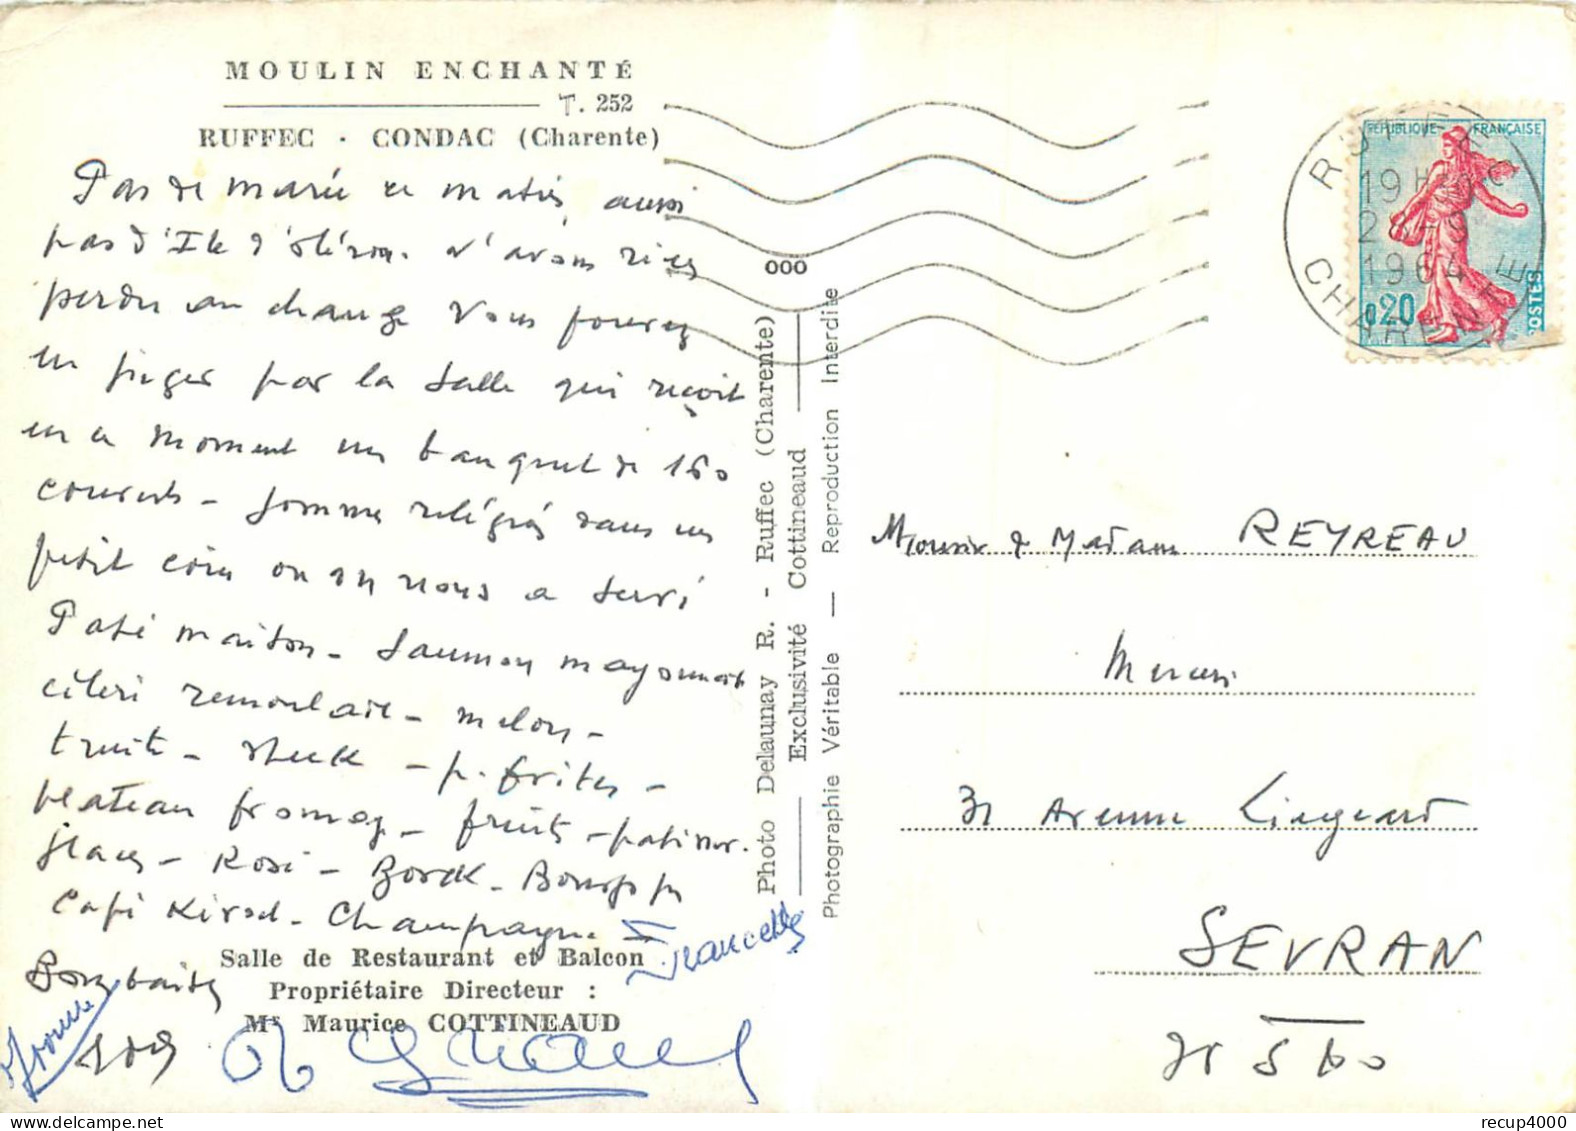 MOULIN ENCHANTÉ
T. 252
RUFFEC - CONDAC (Charente)
Pas de marée ce matin, aussi
pas d'Ile d'Oléron. N'avons rien
perdu au change Vous pouvez
en juger par la salle qui reçoit
en ce moment un banquet de 160
couverts - Sommes relégués dans un
petit coin où on nous a servi
Paté maison - Saumon mayonnaise
céleri remoulade - melon -
truite - steck - p. frites -
plateau fromag - fruits - patiss.
glaces - Rosé - Bord - Bourgog
Café Kirsch - Champagne
Bons baisers
Yvonne
Francette
Salle de Restaurant et Balcon
Propriétaire Directeur :
Mr Maurice COTTINEAUD
Photo Delaunay R. - Ruffec (Charente)
Exclusivité Cottineaud
Photographie Véritable — Reproduction Interdite
000
RUFFEC
19H30
28-9
1964
CHARENTE
REPUBLIQUE FRANÇAISE
0,20
POSTES
Monsieur & Madame REYREAU
31 Avenue Liegeard
SEVRAN
recup4000